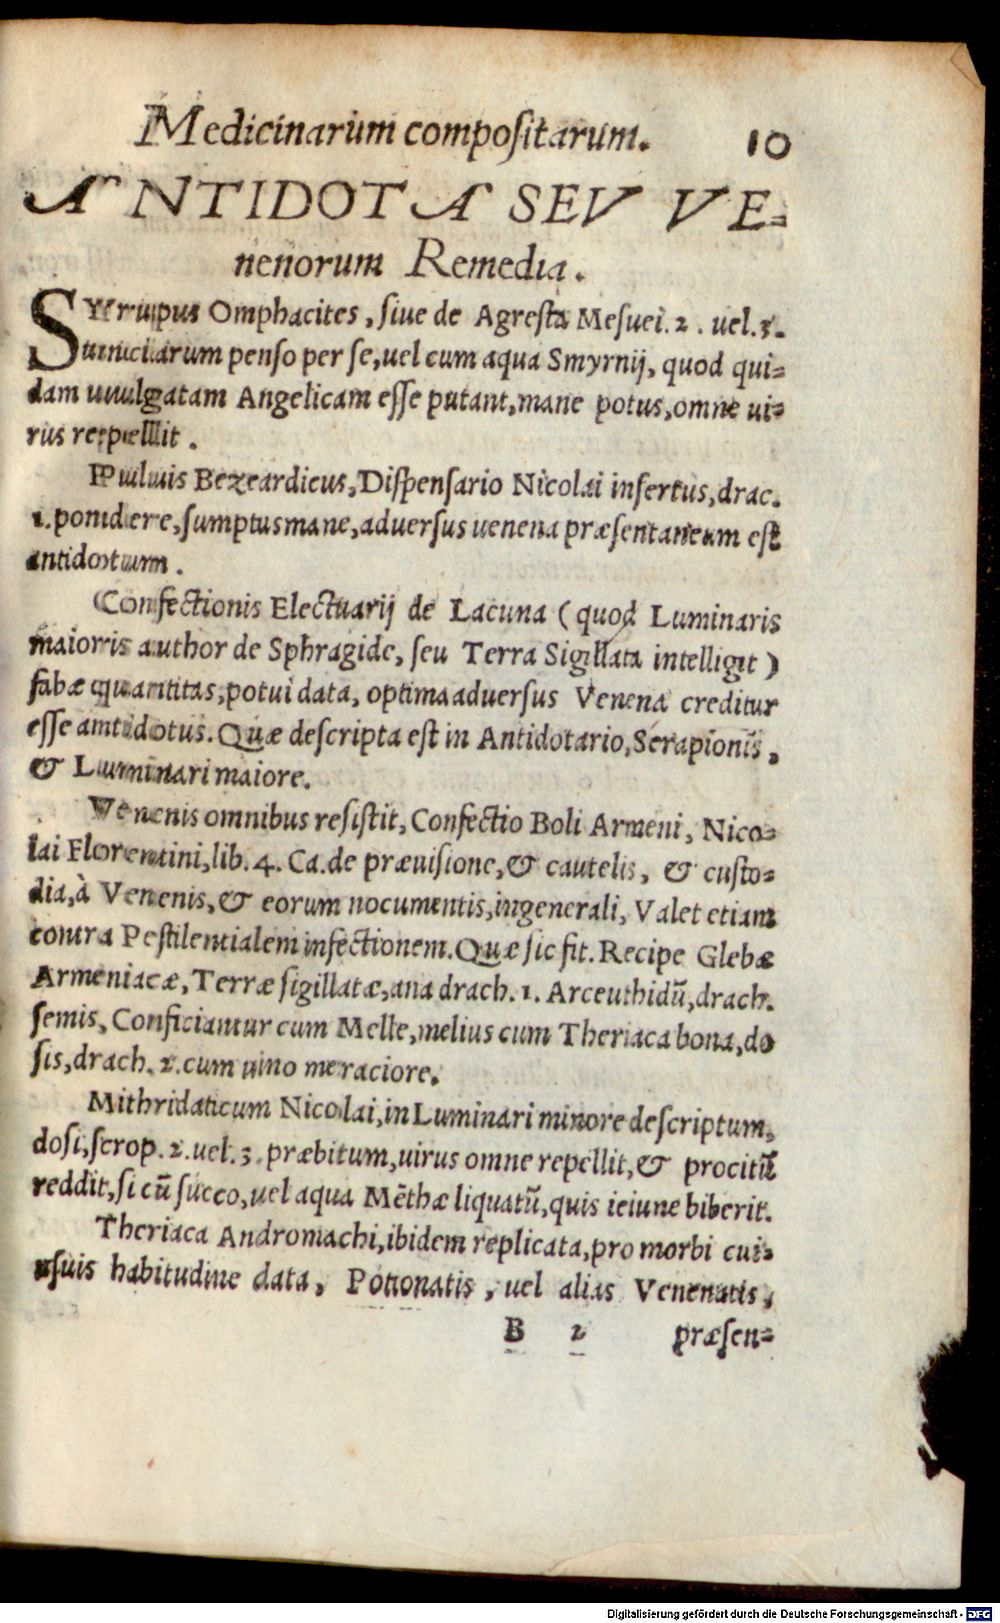 Medicinarum compositarum. 10
ANTIDOTA SEV VE-
nenorum Remedia.
SYrupus Omphacites, siue de Agresta Mesuei. 2. uel. 3.
unciarum penso per se, uel cum aqua Smyrnij, quod qui-
dam uulgatam Angelicam esse putant, mane potus, omne ui-
rus repellit.
Puluis Bezeardicus, Dispensario Nicolai insertus, drac.
1. pondere, sumptus mane, aduersus uenena præsentaneum est
antidotum.
Confectionis Electuarij de Lacuna (quod Luminaris
maioris author de Sphragide, seu Terra Sigillata intelligit)
fabæ quantitas, potui data, optima aduersus Venena creditur
esse antidotus. Quæ descripta est in Antidotario, Serapionis,
& Luminari maiore.
Venenis omnibus resistit, Confectio Boli Armeni, Nico-
lai Florentini, lib. 4. Ca. de præuisione, & cautelis, & custo-
dia, à Venenis, & eorum nocumentis, in generali, Valet etiam
contra Pestilentialem infectionem. Quæ sic fit. Recipe Glebæ
Armeniacæ, Terræ sigillatæ, ana drach. 1. Arceuthidū, drach.
semis, Conficiantur cum Melle, melius cum Theriaca bona, do
sis, drach. 2. cum uino meraciore.
Mithridaticum Nicolai, in Luminari minore descriptum,
dosi, scrop. 2. uel. 3. præbitum, uirus omne repellit, & procitū
reddit, si cū succo, uel aqua Mēthæ liquatū, quis ieiune biberit.
Theriaca Andromachi, ibidem replicata, pro morbi cui-
usuis habitudine data, Potionatis, uel alias Venenatis,
B 2 præsen-
Digitalisierung gefördert durch die Deutsche Forschungsgemeinschaft - DFG